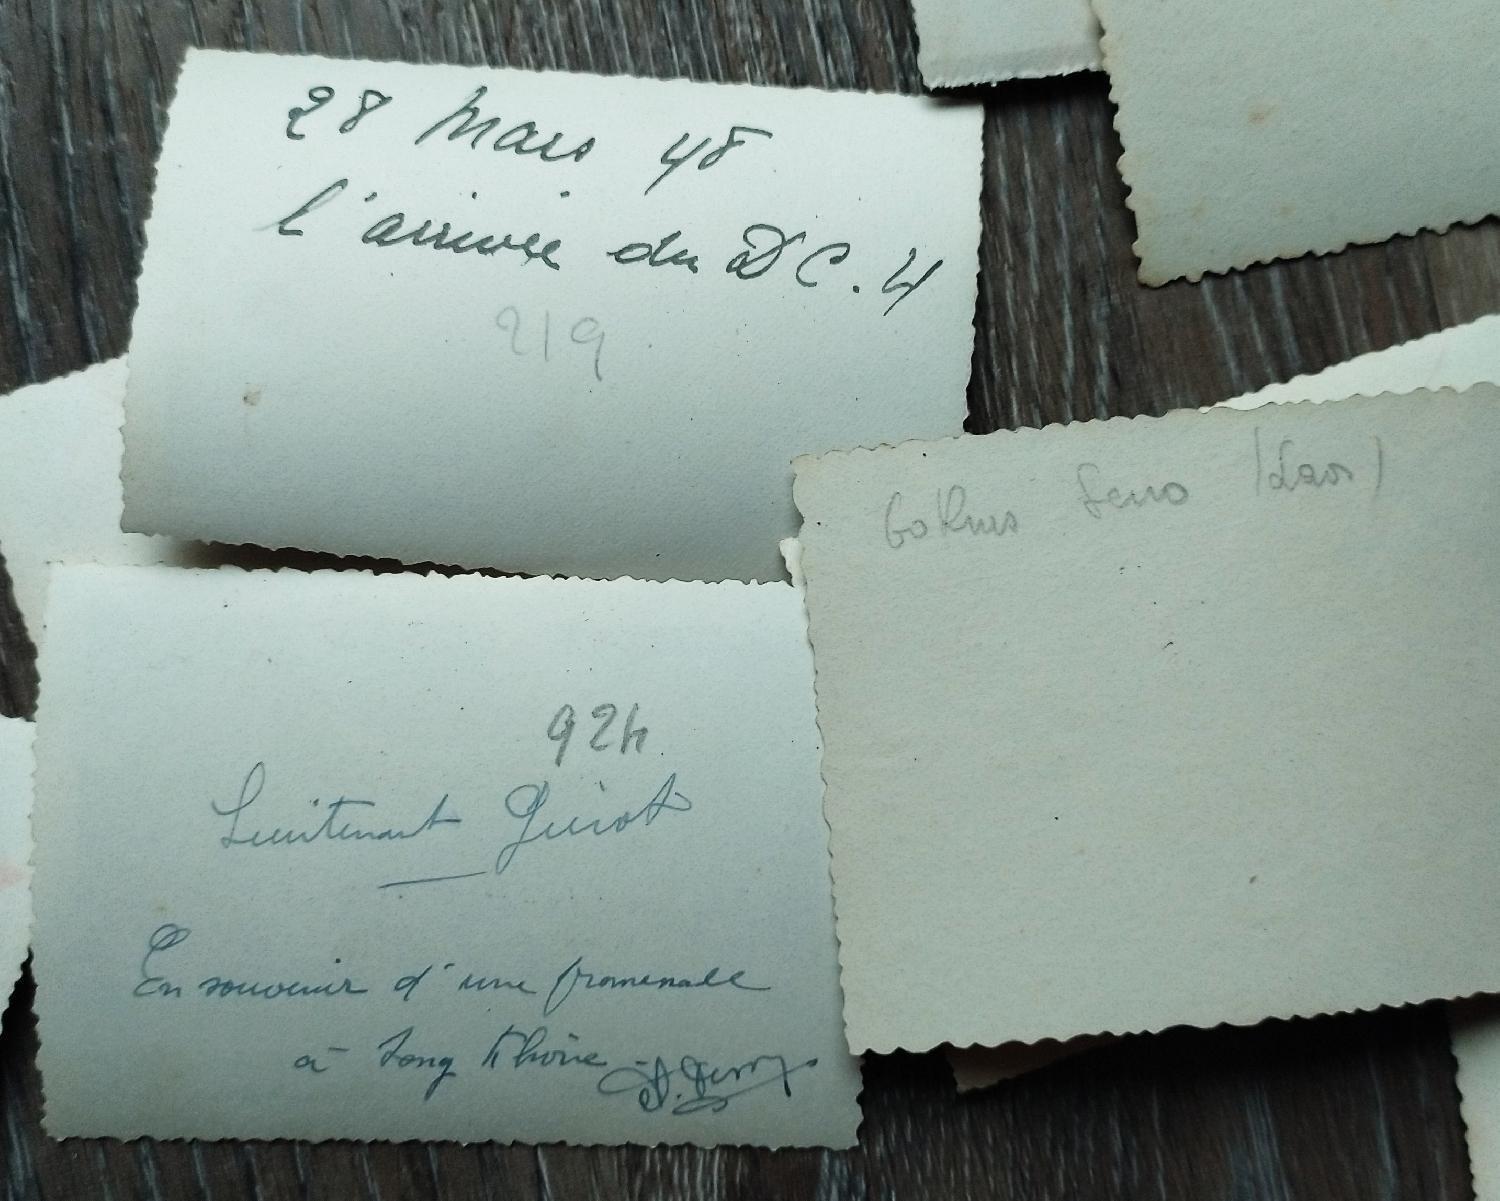 28 Mars 48
l'arrivée du DC.4
219
60 Kms Seno (Laos)
924
Lieutenant Guiot
En souvenir d'une promenade
à Long Khône